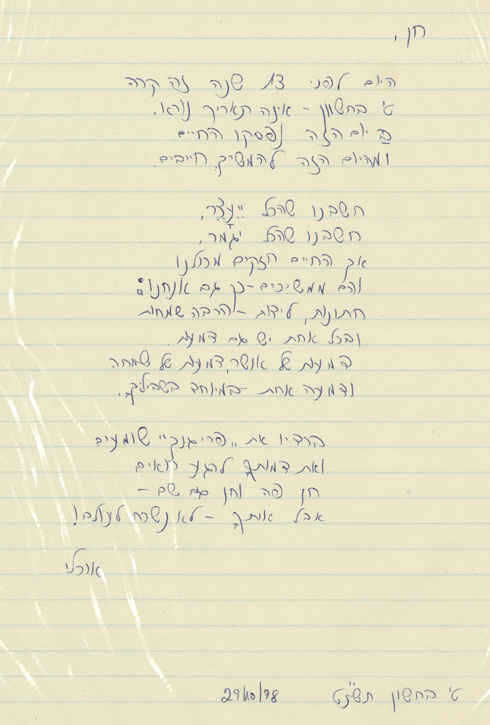 חן,
היום לפני שנה זה קרה
ט' בחשוון – איזה תאריך נורא.
ב יום הזה נפסקו החיים
ומהיום הזה להמשיך חייבים.
חשבנו שהכל ייעצר,
חשבנו שהכל יגמר,
אך החיים חזקים מכולנו
והם ממשיכים – כך גם אנחנו:
חתונות, לידות – הרבה שמחות
ובכל אחת יש גם דמעות.
דמעות של אושר, דמעות של שמחה
ודמעה אחת – במיוחד בשבילך.
ברדיו את שומעים
ואת דמותך לרגע רואים
חן פה וחן גם שם –
אבל אותך – לא נשכח לעולם!
אורלי
ט' בחשוון תשנ"ט 29/10/98